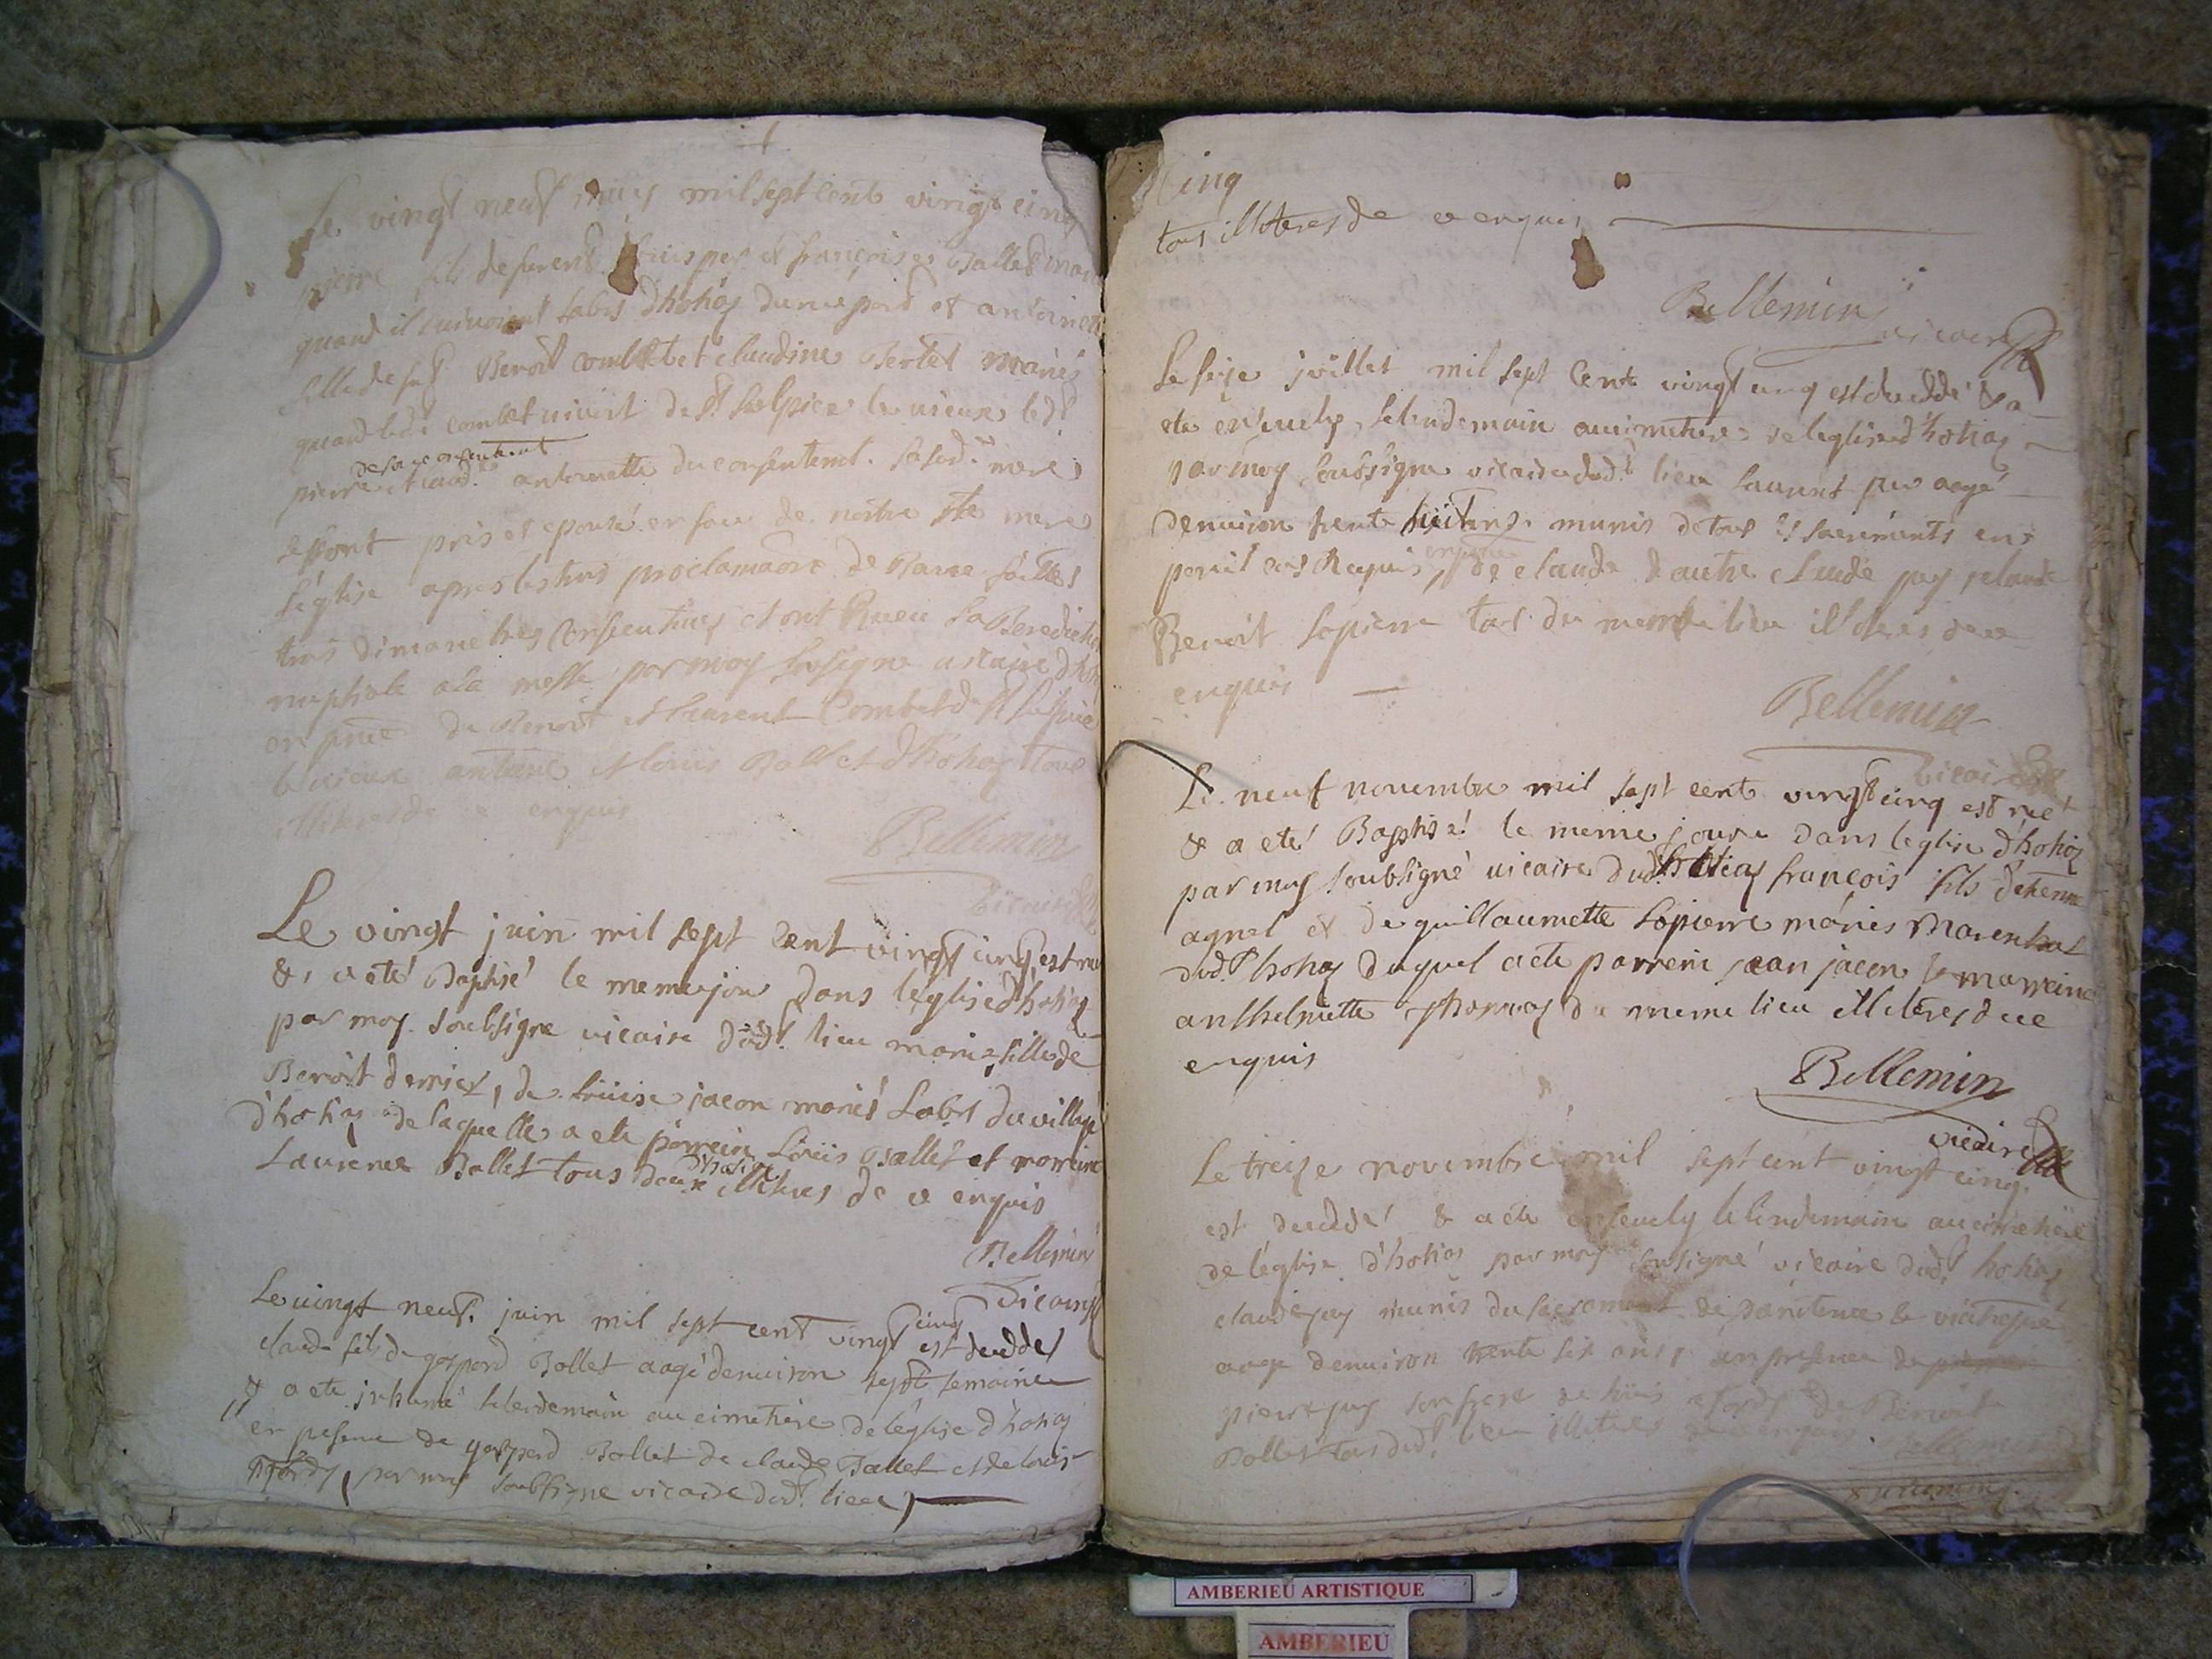 Le vingt neuf may mil sept cent vingt cinq
pierre fils de laurent et françoise Ballet
quand il vivoient labrs d'hotias et antoinette
fille de Benoît combet et claudine mariés
quand led.t combet vivoit de st sulpice le vieux led.t
de sa consentent
pierre et lad. antoinette du consentemt. mere
se sont pris et epousé en face de nostre ste mere
l'église apres les trois proclamaõns de Banc faittes
trois dimanches consecutives et ont Receu la Benediction
nuptiale a la messe par moy soussigne vicaire d'hotias
en pnce de Benoit et laurent Combet de st sulpice
le vieux antoine et louis Ballet d'hotias tous
illiteres de ce enquis
Bellemin
vicaire
Le vingt juin mil sept cent vingt cinq est née
& a eté Baptisé le meme jour dans léglise d'hotias
par moy soubsigne vicaire dud.t lieu marie fille de
Benoît dernier, de loüise jacon mariés Labrs du village
d'hotias de laquelle a ete parrein Loüis Ballet et marreine
d'hotias
Laurence Ballet tous deux illiteres de ce enquis
Bellemin
vicaire
Le vingt neuf juin mil sept cent vingt cinq est decedé
claude fils de gaspard Bollet aagé denuiron sept semaines
& a ete inhumé le lendemain au cimetière de léglise d'hotias
en presence de gaspard Bollet de claude Ballet et de louis
par moy soubsigne vicaire dud.t lieu
cinq
tous illiteres de ce enquis
Bellemin
vicaire
Le seize juillet mil sept cent vingt cinq est decedé & a
ete enseuely le lendemain au cimetiere de leglise d'hotias
par moy soubsigne vicaire dud.t lieu laurent aagé
denuiron trente huit ans munis de tous les sacrements en
peril de claude & autre claude juy,
Benoit lapierre tous du meme lieu illiteres de ce
enquis
Bellemin
vicaire
Le neuf novembre mil sept cent vingt cinq est né
& a eté Baptisé le meme jour dans leglise d'hotias
par moy soubsigné vicaire dud.t hotias françois fils d'etienne
agnel et de guillaumette lapierre mariés
dud.t hotias duquel a ete parrein jean jacon & marreine
anthelmette du meme lieu illiteres de ce
enquis
Bellemin
vicaire
Le treize novembre mil sept cent vingt cinq
est decedé & a ete enseuely le lendemain au cimetiere
de léglise d'hotias par moy soussigné vicaire dud.t hotias
claude juy munis du sacrement de penitence & viatique
aage denuiron trente six ans, en presence de
pierre juy son frere de loüis de Benoist
Bollet tous dud.t lieu illiteres de ce enquis Bellemin
AMBERIEU ARTISTIQUE
AMBERIEU